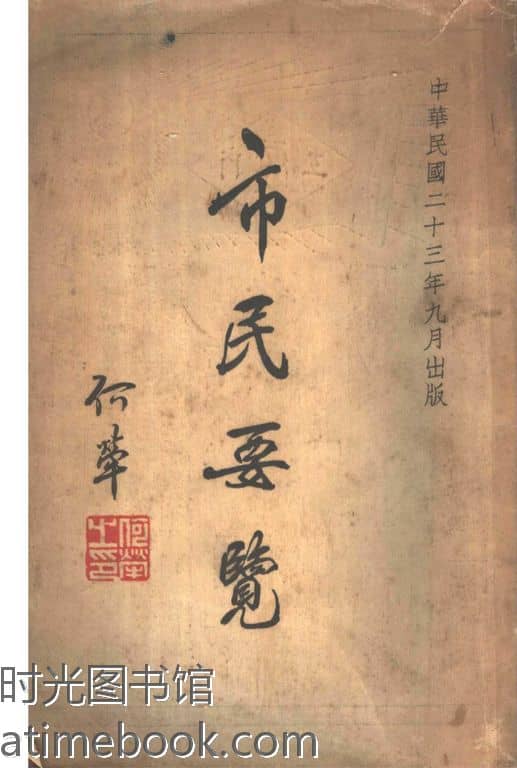 中華民國二十三年九月出版
市民要覽
何犖
何犖之印
时光图书馆
atimebook.com